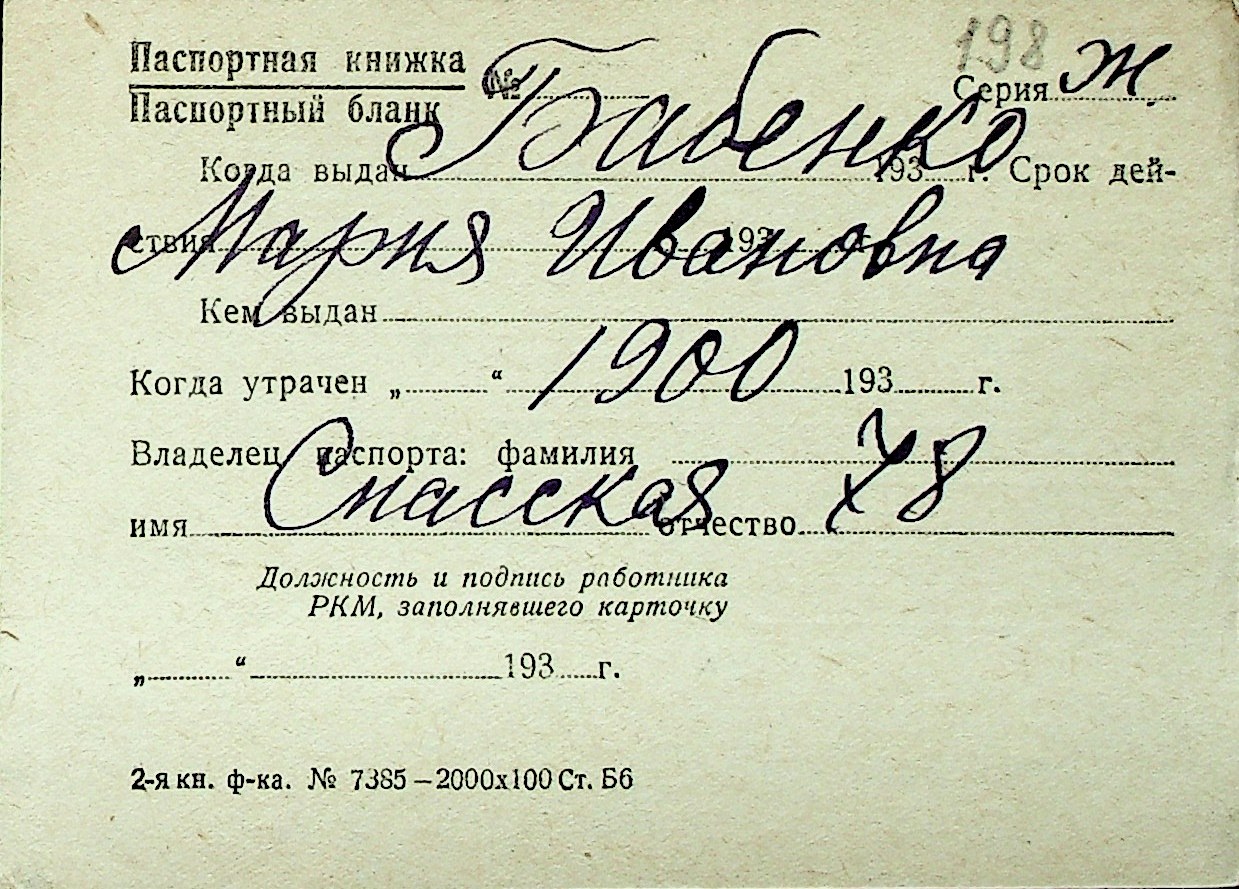 198
Паспортная книжка
№ Серия ж
Паспортный бланк
Бабенко
Когда выдан 193 г. Срок дей-
ствия 193 г.
Мария Ивановна
Кем выдан
1900
Когда утрачен „ “ 193 г.
Владелец паспорта: фамилия
Спасская 78
имя отчество
Должность и подпись работника
РКМ, заполнявшего карточку
„ “ 193 г.
2-я кн. ф-ка. № 7385 – 2000х100 Ст. Б6